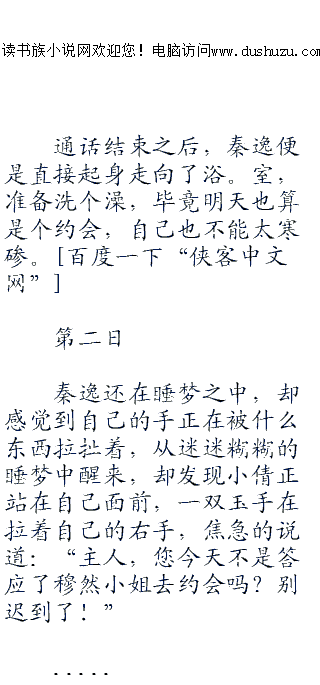 读书族小说网欢迎您！电脑访问www.dushuzu.com
通话结束之后，秦逸便
是直接起身走向了浴。室，
准备洗个澡，毕竟明天也算
是个约会，自己也不能太寒
碜。[百度一下“侠客中文
网”]
第二日
秦逸还在睡梦之中，却
感觉到自己的手正在被什么
东西拉扯着，从迷迷糊糊的
睡梦中醒来，却发现小倩正
站在自己面前，一双玉手在
拉着自己的右手，焦急的说
道：“主人，您今天不是答
应了穆然小姐去约会吗？别
迟到了！”
.....